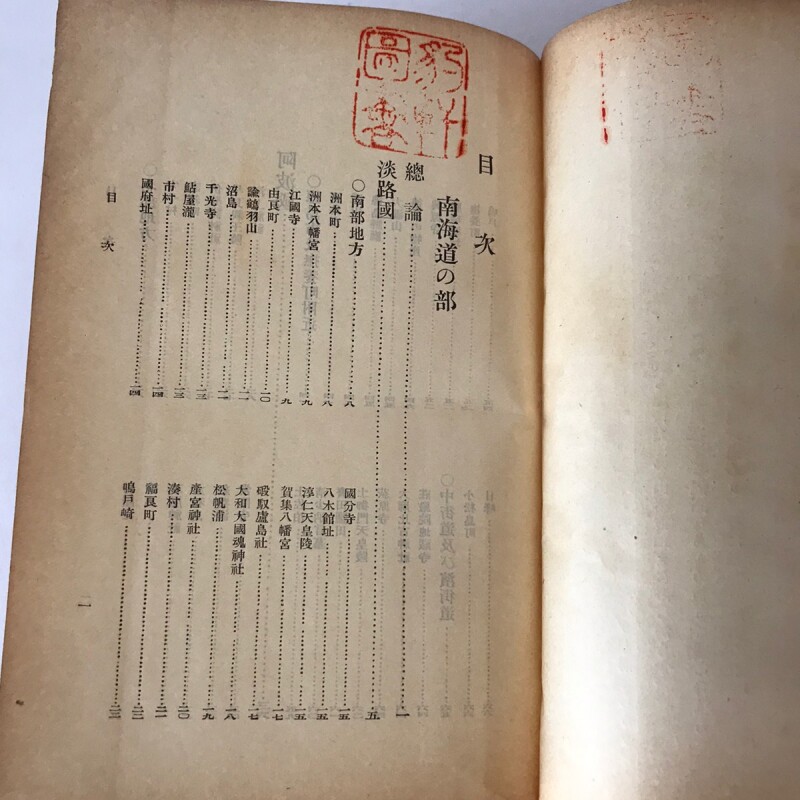 目次
南海道の部
總論……一
淡路國……五
○南部地方……八
洲本町……八
洲本八幡宮……九
江國寺……九
由良町……一〇
諭鶴羽山……一一
沼島……一一
千光寺……一三
鮎屋瀧……一三
市村……一四
國府址……一四
國分寺……一五
八木館址……一五
淳仁天皇陵……一五
賀集八幡宮……一七
碬馭盧島社……一七
大和大國魂神社……一八
松帆浦……一九
產宮神社……二〇
湊村……二一
福良町……二二
鳴戶崎……二二
目次
一